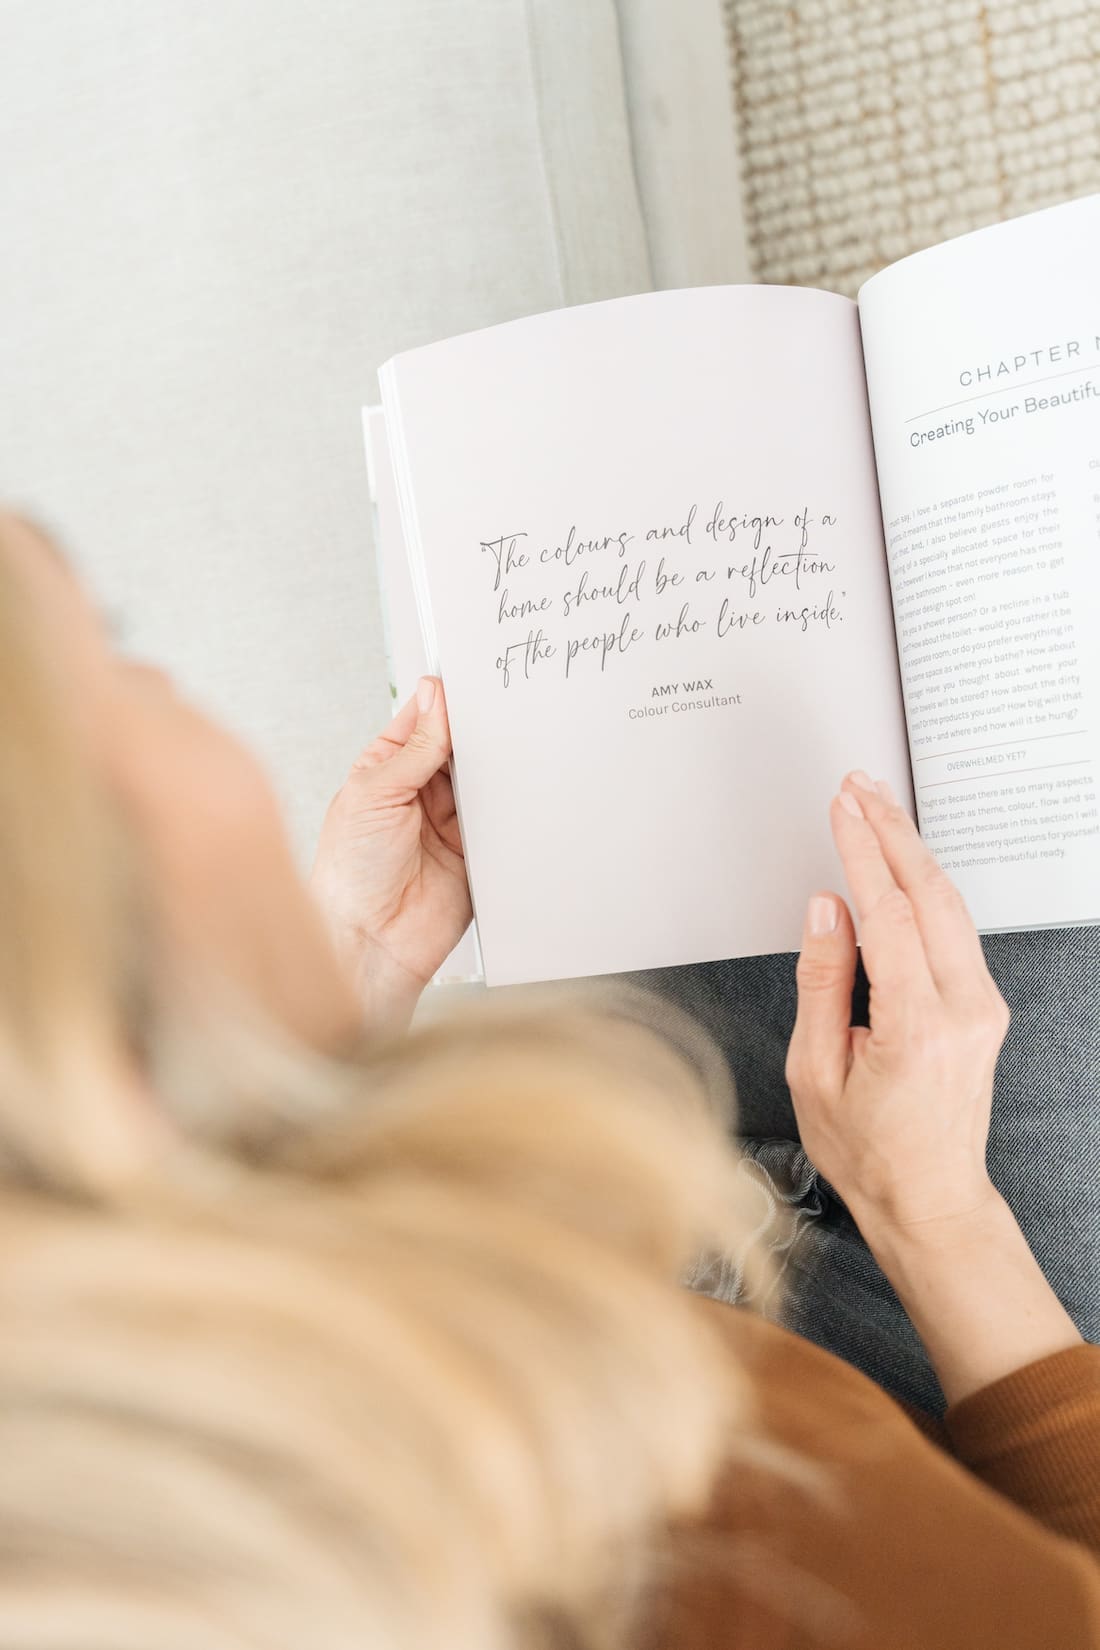 "The colours and design of a
home should be a reflection
of the people who live inside."
AMY WAX
Colour Consultant
CHAPTER
Creating Your
say, I love a separate powder room for
it means that the family bathroom stays
that. And, I also believe guests enjoy the
of a specially allocated space for their
however I know that not everyone has more
one bathroom – even more reason to get
interior design spot on!
you a shower person? Or a recline in a tub
How about the toilet – would you rather it be
separate room, or do you prefer everything in
same space as where you bathe? How about
Have you thought about where your
towels will be stored? How about the dirty
Or the products you use? How big will that
be – and where and how will it be hung?
OVERWHELMED YET?
so! Because there are so many aspects
consider such as theme, colour, flow and so
But don't worry because in this section I will
you answer these very questions for yourself
can be bathroom-beautiful ready.